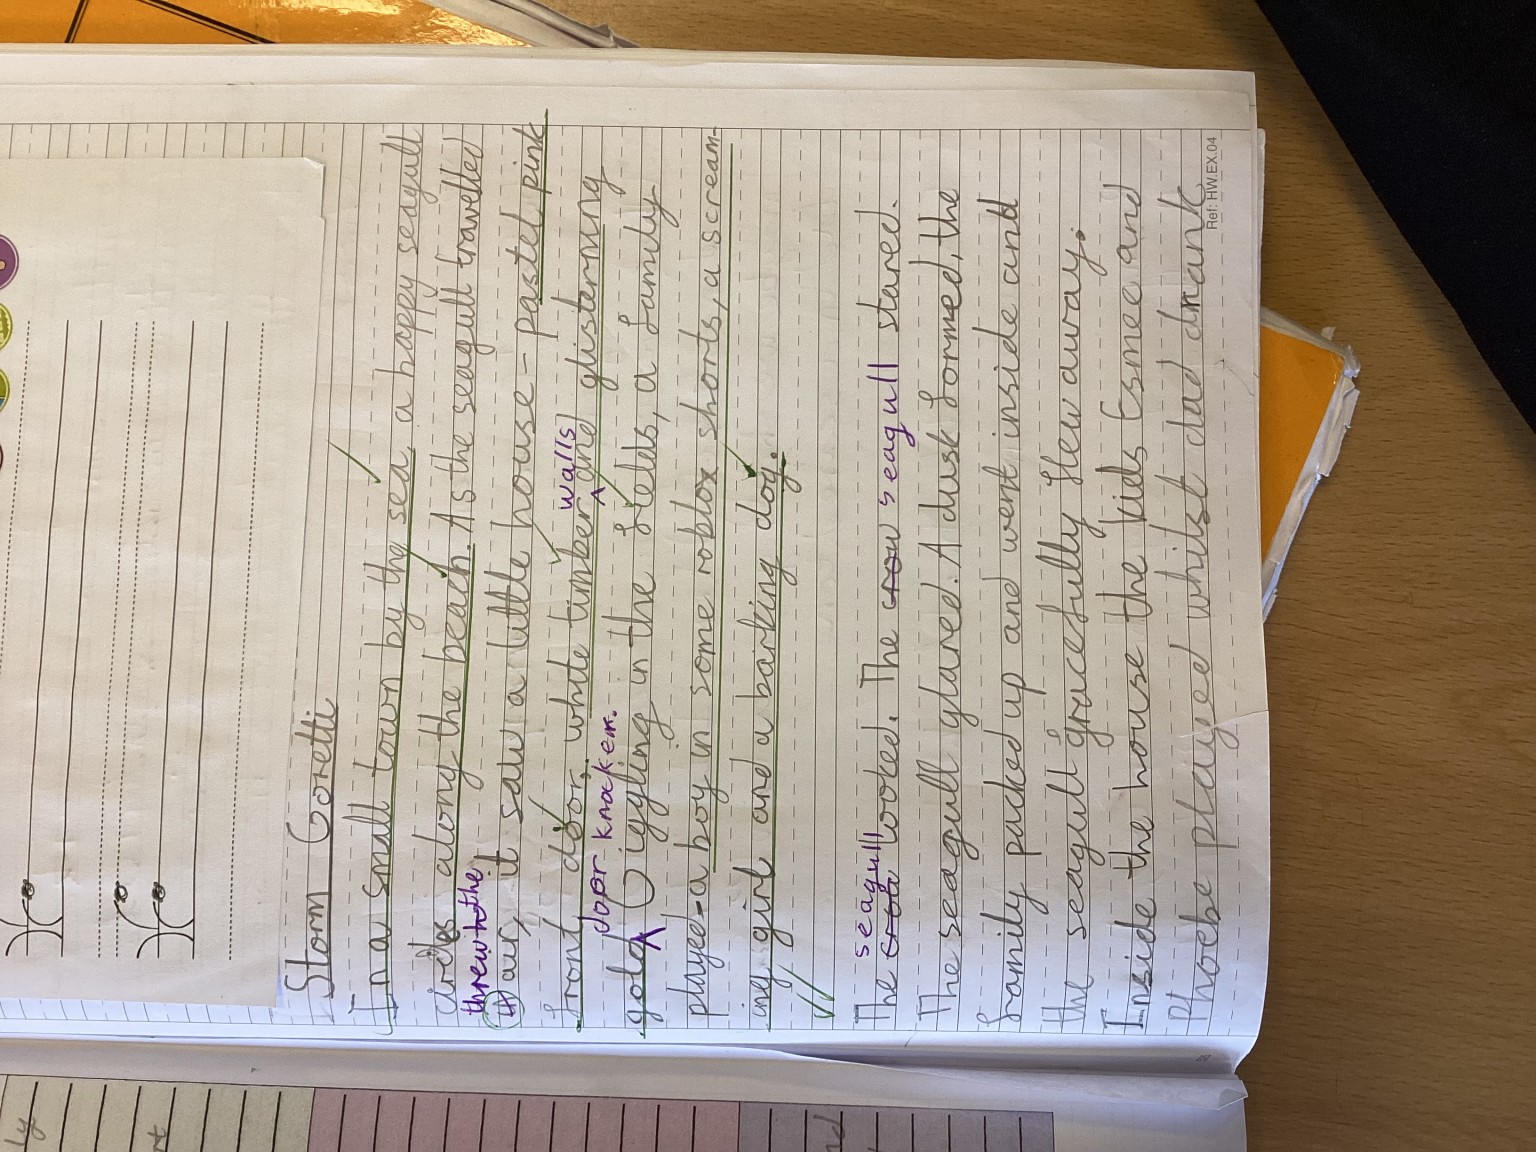 Storm Goretti
In a small town by the sea, a happy seagull
circles along the beach. As the seagull travelled
threw the
air, it saw a little house - pastel pink
walls
front door, white timber and glistening
door knocker.
gold Giggling in the fields, a family
played - a boy in some roblox shorts, a scream-
ing girl and a barking dog.
seagull
The crow looked. The crow seagull stared.
The seagull glared. A dusk formed, the
family packed up and went inside and
the seagull gracefully flew away.
Inside the house the kids Esmee and
Phoebe played whilst dad drank
Ref: HW.EX.04